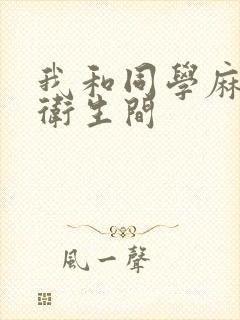 我和同學麻
衛生間
風一聲